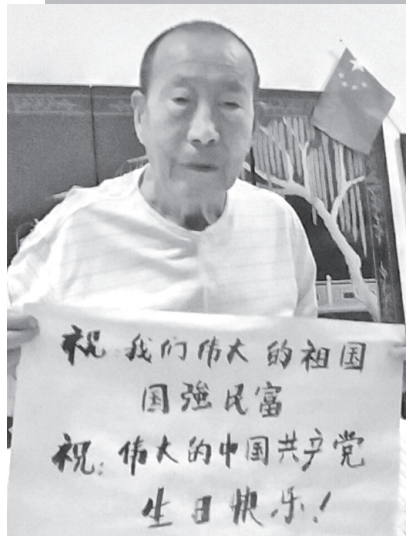 祝 我们伟大的祖国
国強民富
祝:伟大的中国共产党
生日快乐!